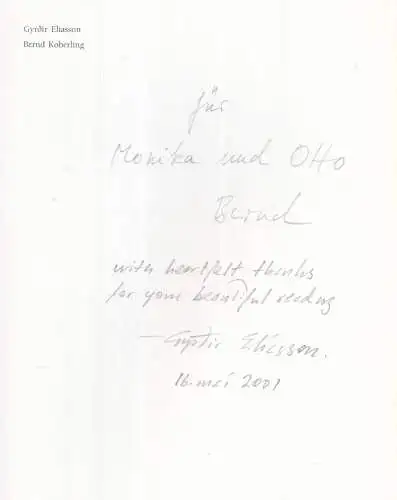 Gyrðir Elíasson
Bernd Koberling
für
Monika und Otto
Bernd
with heartfelt thanks
for your beautiful reading
— Gyrðir Elíasson.
16. maí 2001